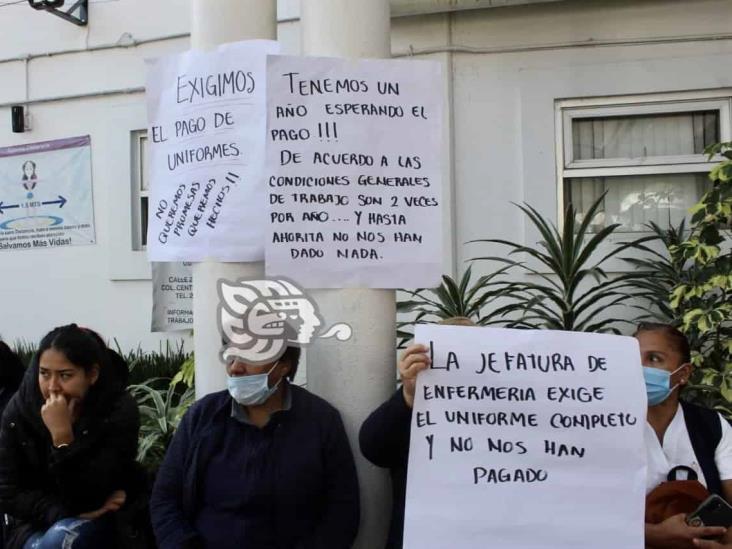 EXIGIMOS
EL PAGO DE
UNIFORMES.
NO
QUEREMOS
PROMESAS
QUEREMOS
HECHOS!!
TENEMOS UN
AÑO ESPERANDO EL
PAGO!!!
DE ACUERDO A LAS
CONDICIONES GENERALES
DE TRABAJO SON 2 VECES
POR AÑO.... Y HASTA
AHORITA NO NOS HAN
DADO NADA.
LA JEFATURA DE
ENFERMERIA EXIGE
EL UNIFORME COMPLETO
Y NO NOS HAN
PAGADO
1.5 MTS
Salvamos Más Vidas!
CALLE
COL. CENT
TEL.